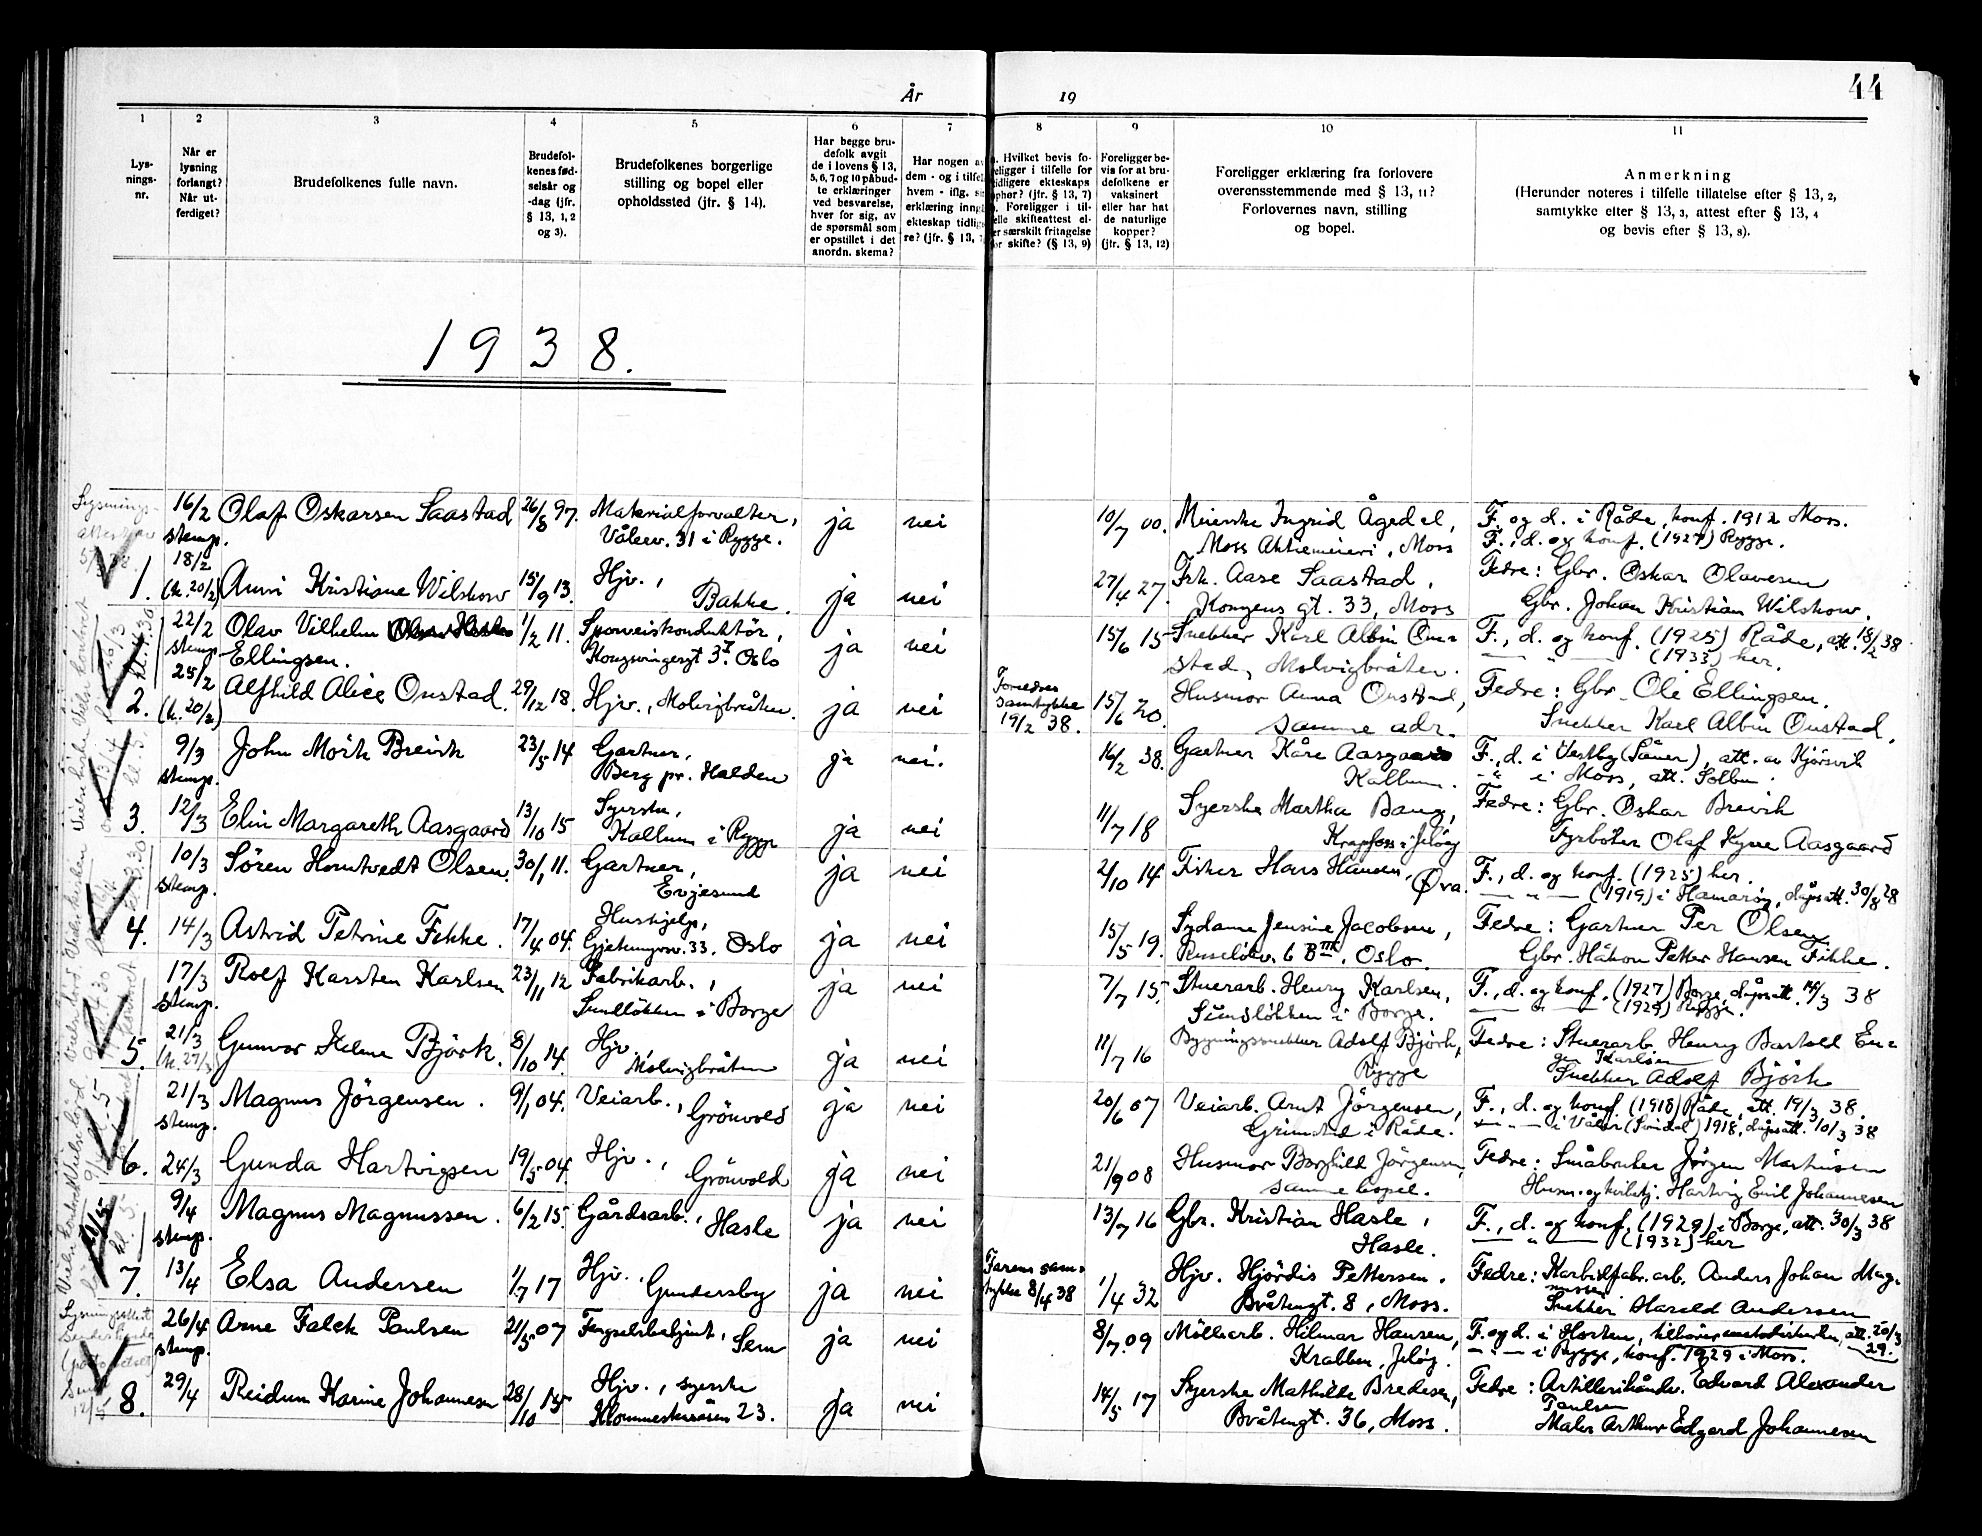 År 19
44
1 2 3 4 5 6 7 8 9 10 11
Lys-
nings-
nr.
Når er
lysning
forlangt?
Når ut-
ferdiget?
Brudefolkenes fulle navn.
Brudefol-
kenes fød-
selsår og
-dag (jfr.
§ 13, 1, 2
og 3).
Brudefolkenes borgerlige
stilling og bopel eller
opholdssted (jfr. § 14).
Har begge bru-
defolk avgit
de i lovens § 13,
5, 6, 7 og 10 påbud-
te erklæringer
ved besvarelse,
hver for sig, av
de spørsmål som
er opstillet i det
anordn. skema?
Har nogen av
dem - og i tilfel
hvem - iflg. si
erklæring inngå
ekteskap tidlig
re? (jfr. § 13,
Hvilket bevis fo-
eligger i tilfelle for
tidligere ekteskaps
phør? (jfr. § 13, 7)
Foreligger i til-
elle skifteattest el-
er særskilt fritagelse
or skifte? (§ 13, 9)
Foreligger be-
vis for at bru-
defolkene er
vaksinert
eller har hat
de naturlige
kopper?
(jfr. § 13, 12)
Foreligger erklæring fra forlovere
overensstemmende med § 13, 11?
Forlovernes navn, stilling
og bopel.
Anmerkning
(Herunder noteres i tilfelle tillatelse efter § 13, 2,
samtykke efter § 13, 3, attest efter § 13, 4
og bevis efter § 13, 8).
1938.
16/2 Olaf Oskarsen Saastad 26/8 97. Materialforvalter, ja nei 10/7 00. Meierske Ingrid Ågedel, F. og d. i Råde, konf. 1912 Moss.
stemp. Vålerv. 31 i Rygge. Moss Aktiemeieri, Moss F., d. og konf. (1927) Rygge.
18/2
1. (k. 20/2) Anni Kristiane Wilskow 15/9 13. Hjv., Bakke. ja nei 27/4 27. Frk. Aase Saastad, Fedre: Gbr. Oskar Olavesen
Kongens gt. 33, Moss Gbr. Johan Kristian Wilskow.
22/2 Olav Vilhelm 1/2 11. Sporveiskonduktör, ja nei 15/6 15 Snekker Karl Albin Onu- F., d. og konf. (1925) Råde, att. 18/2 38
stemp. Ellingsen. Kongsvingergt 3 I. Oslo stad, Molvigbråten. — " — (1933) her.
25/2
2. (k. 20/2) Alfhild Alice Onstad. 29/12 18. Hjv., Molvigbråten. ja nei Foreldres samtykke 19/2 38. 15/6 20. Husmor Anna Onstad, Fedre: Gbr. Ole Ellingsen.
samme adr. Snekker Karl Albin Onstad.
9/3 John Mörk Brevik 23/5 14 Gartner, ja nei. 16/2 38. Gartner Kåre Aasgaard F., d. i Vestby (Såner), att. av Kjörvik
stemp. Berg pr. Halden Kallum. — " — i Moss, att. Solbu.
3. 12/3 Elin Margareth Aasgaard 13/10 15 Syerske, ja nei 11/7 18 Syerske Martha Baug, Fedre: Gbr. Oskar Brevik
Kallum i Rygge Krapfoss i Jelöy Fyrböter Olaf Kyrre Aasgaard
10/3 Sören Horntvedt Olsen. 30/1 11. Gartner, ja nei 2/10 14 Fisker Hans Hansen, Øra. F., d. og konf. (1925) her.
stemp. Evjesund — " — (1919) i Hamarøy, dåpsatt. 30/8 28
4. 14/3 Astrid Petrine Fikke. 17/4 04. Hushjelp, ja nei 15/5 19. Sydame Jensine Jacobsen, Fedre: Gartner Per Olsen
Gjetemyrsv. 33. Oslo Ruseløkv. 6 B III. Oslo. Gbr. Håkon Petter Hansen Fikke.
17/3 Rolf Karsten Karlsen 23/11 12 Fabrikarb., ja nei 7/7 15. Stuerarb. Henry Karlsen, F., d. og konf. (1927) Borge, dåpsatt. 14/3 38
stemp. Sundlökken i Borge Sundslökken i Borge. — " — (1929) Rygge.
5. 21/3 Gunvor Helene Björk. 8/10 14. Hjv. ja nei 11/7 16 Bygningssnekker Adolf Björk, Fedre: Stuerarb. Henry Bartold Eu-
(k. 27/3) Molvigbråten Rygge gen Karlsen
Snekker Adolf Björk
21/3 Magnus Jörgensen. 9/1 04. Veiarb., Grönvold ja nei 20/6 07 Veiarb. Arnt Jörgensen, F., d. og konf. (1918) Råde, att. 19/3 38.
stemp. Grimstad i Råde. — " — i Våler (Svindal) 1918, dåpsatt. 10/3 38
6. 24/3 Gunda Hartvigsen 19/5 04. Hjv., Grönvold ja nei 21/9 08 Husmor Borghild Jörgensen, Fedre: Småbruker Jörgen Martinsen
samme bopel. Husm. og kirketj. Hartvig Emil Johannesen
9/4 Magnus Magnussen. 6/2 15. Gårdsarb., Hasle ja nei 13/7 16 Gbr. Kristian Hasle, F., d. og konf. (1929) i Borge, att. 30/3 38
stemp. Hasle. — " — (1932) her
7. 13/4 Elsa Andersen 1/7 17 Hjv. Gundersby ja nei Farens sam- tykke 8/4 38 1/4 32 Hjv. Hjördis Pettersen. Fedre: Karbidfabr.arb. Anders Johan Mag-
Bråtengt. 8, Moss. nussen
Snekker Harald Andersen
26/4 Arne Falck Paulsen 21/5 07 Fengselsbetjent, Sem ja nei 8/7 09 Møllearb. Hilmar Hansen, F. og d. i Horten, tilhörer metodistkirken, att. 20/3 29.
stemp. Krabben, Jelöy. — " — i Rygge, konf. 1929 i Moss.
8. 29/4 Reidun Karine Johannesen 28/10 15 Hjv., syerske ja nei 14/5 17 Syerske Mathilde Bredesen, Fedre: Artillerihåndv. Edvard Alexander
23. Bråtengt. 36, Moss. Paulsen
Maler Arthur Edgard Johannesen